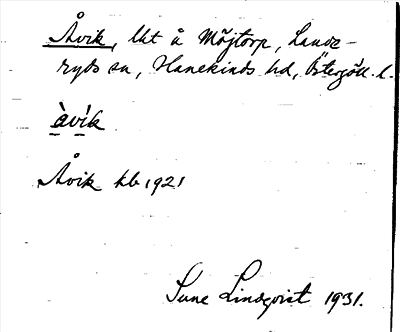 Åvik, lht å Möjtorp, Lande-
ryds sn, Hanekinds hd, Östergötl. l.
àvík
Åvik kb 1921
Sune Lindqvist 1931.